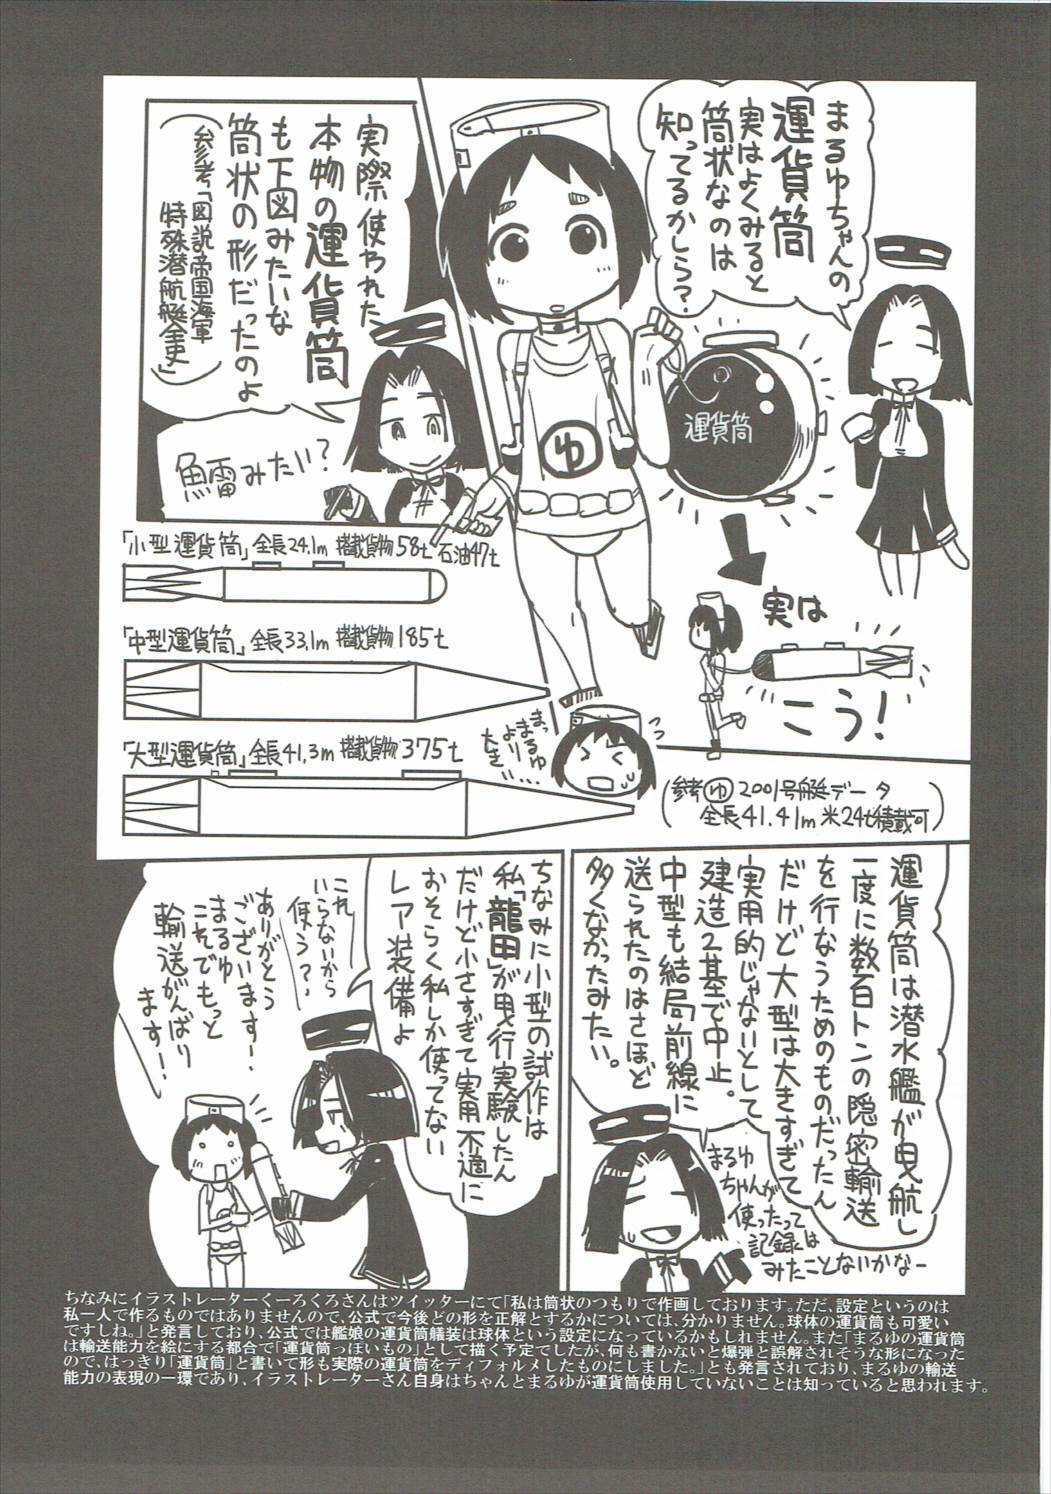 まるゆちゃんの
運貨筒
実はよくみると
筒状なのは
知ってるかしら?
運貨筒
ゆ
実は
こう!
実際使われた
本物の運貨筒
も下図みたいな
筒状の形だったのよ
(参考「図説帝国海軍
特殊潜航艇全史」)
魚雷みたい?
「小型運貨筒」全長24.1m 搭載貨物58t 石油47t
「中型運貨筒」全長33.1m 搭載貨物185t
「大型運貨筒」全長41.3m 搭載貨物375t
まっ
まるゆ
より
大き……
(参考ゆ2001号艇データ
全長41.41m 米24t積載可)
運貨筒は潜水艦が曳航し
一度に数百トンの隠密輸送
を行なうためのものだったん
だけど大型は大きすぎて
実用的じゃないとして
建造2基で中止。
中型も結局前線に
送られたのはさほど
多くなかったみたい。
まるゆ
ちゃんが
使ったって
記録は
みたことないかなー
ちなみに小型の試作は
私「龍田」が曳行実験したん
だけど小さすぎて実用不適に
おそらく私しか使ってない
レア装備よ
これ
いらないから
使う?
ありがとう
ございます!
まるゆ
これでもっと
輸送がんばり
ます!
ちなみにイラストレーターくーろくろさんはツイッターにて「私は筒状のつもりで作画しております。ただ、設定というのは
私一人で作るものではありませんので、公式で今後どの形を正解とするかについては、分かりません。球体の運貨筒も可愛い
ですしね。」と発言しており、公式では艦娘の運貨筒艤装は球体という設定になっているかもしれません。また「まるゆの運貨筒
は輸送能力を絵にする都合で「運貨筒っぽいもの」として描く予定でしたが、何も書かないと爆弾と誤解されそうな形になった
ので、はっきり「運貨筒」と書いて形も実際の運貨筒をディフォルメしたものにしました。」とも発言されており、まるゆの輸送
能力の表現の一環であり、イラストレーターさん自身はちゃんとまるゆが運貨筒使用していないことは知っていると思われます。